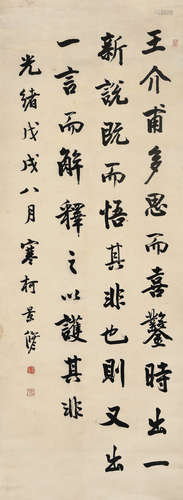 王介甫多思而喜鑿時出一
新說既而悟其非也則又出
一言而解釋之以護其非
光緒戊戌八月寒柯景